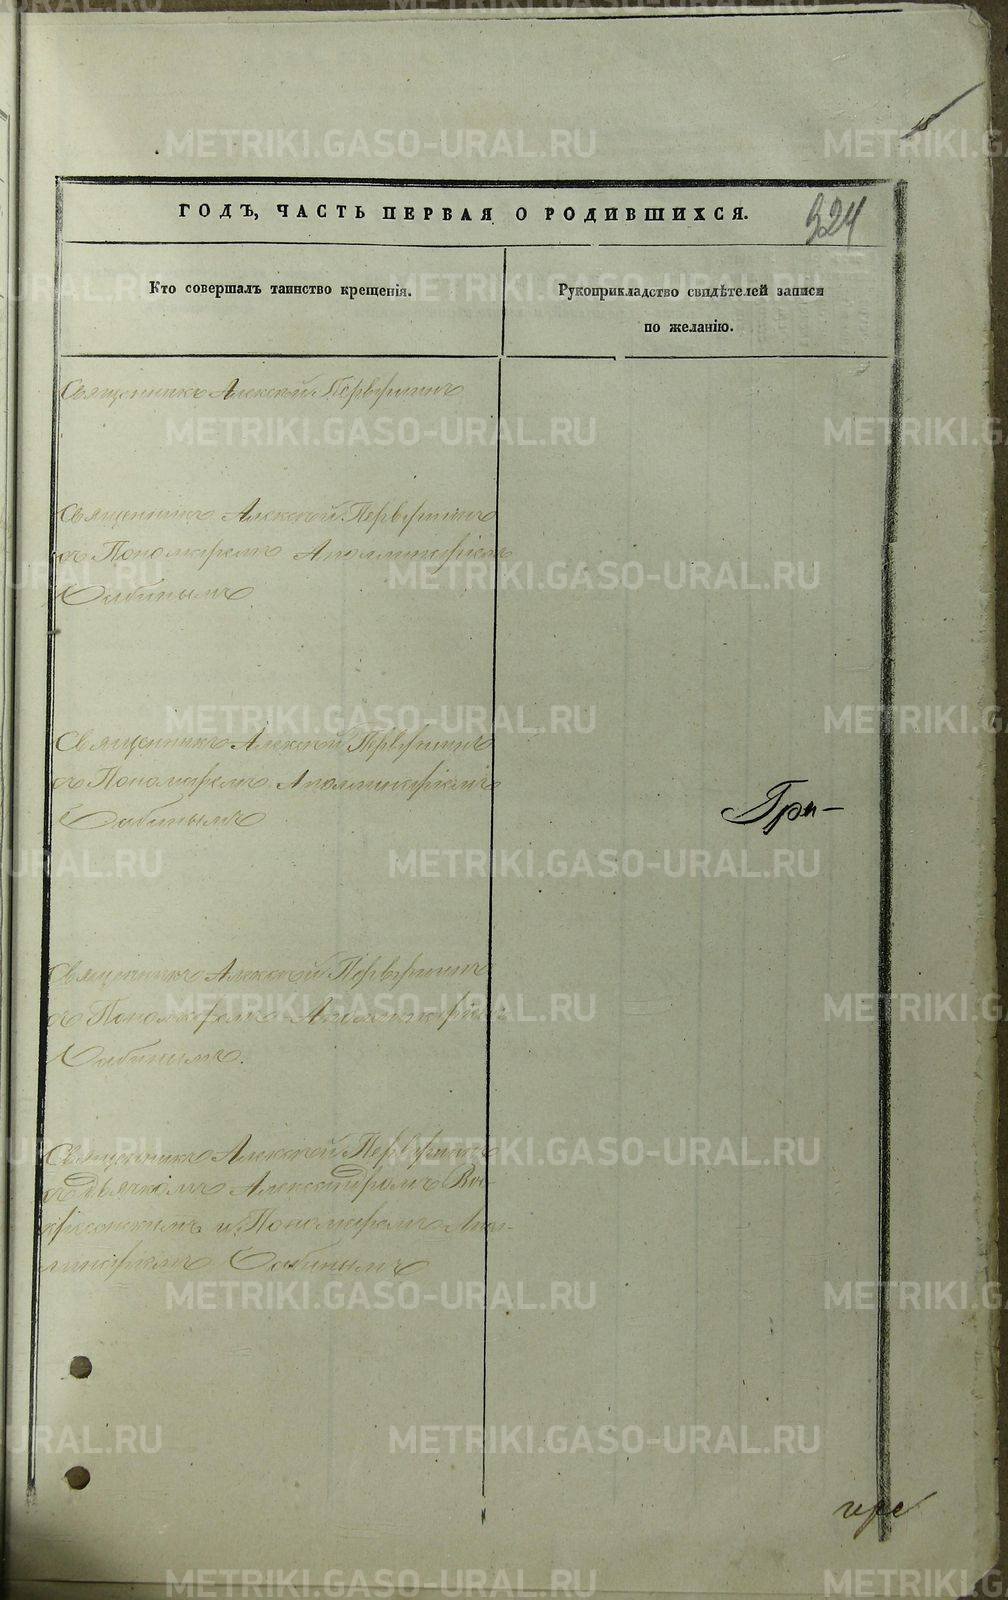 18
ГОДЪ, ЧАСТЬ ПЕРВАЯ О РОДИВШИХСЯ.
324
Кто совершалъ таинство крещенія.
Рукоприкладство свидѣтелей записи
по желанію.
Священникъ Алексѣй Первушинъ
Священникъ Алексѣй Первушинъ
съ Пономаремъ Аполлинаріемъ
Бабинымъ
Священникъ Алексѣй Первушинъ
съ Пономаремъ Аполлинаріемъ
Бабинымъ
Гри-
Священникъ Алексѣй Первушинъ
съ Пономаремъ Аполлинаріемъ
Бабинымъ.
Священникъ Алексѣй Первушинъ
съ Дьячкомъ Александромъ Вос-
кресенскимъ и Пономаремъ Апол-
линаріемъ Бабинымъ
METRIKI.GASO-URAL.RU